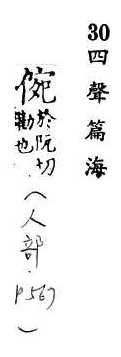 30四聲篇海
㑼於阮切
勸也
(人部.
P567)